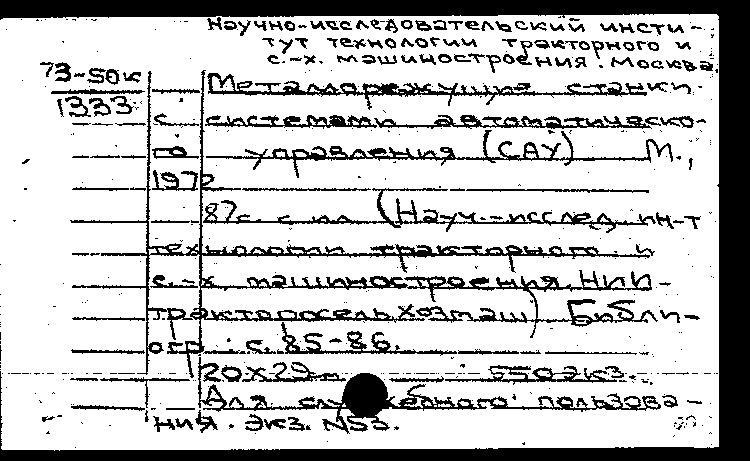 Научно-исследовательский инсти-
тут технологии тракторного и
с.-х. машиностроения. Москва.
73-50к
1333
Металлорежущие станки
с системами автоматическо-
го управления (САУ) М.,
1972
87с. с ил (Науч.-исслед. ин-т
технологии тракторного и
с.-х. машиностроения. НИИ-
тракторосельхозмаш) Библи-
огр.: с. 85-86.
20х29 550 экз.
Для служебного пользова-
ния. Экз. №53.